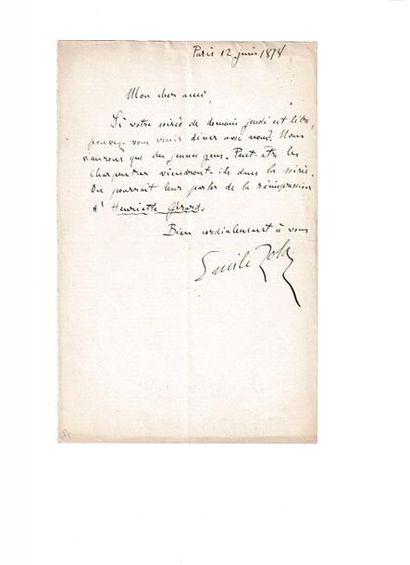 Paris 12 juin 1878
Mon cher ami,
Si votre soirée de demain jeudi est libre,
pouvez vous venir dîner avec nous? Nous
n'aurons que des jeunes gens. Peut être les
Charpentier viendront-ils dans la soirée.
On pourrait leur parler de la réimpression
d'Henriette Gérard.
Bien cordialement à vous
Emile Zola